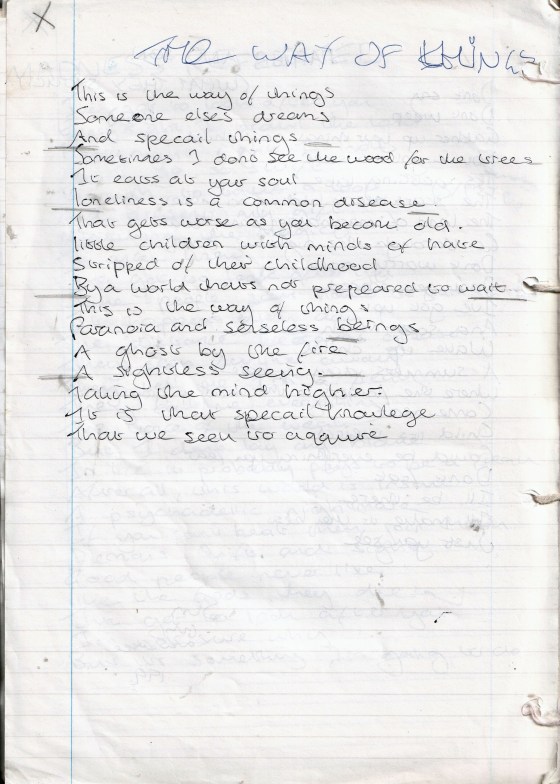 X
THE WAY OF THINGS
This is the way of things
Someone elses dreams
And specail things
Sometimes I don't see the wood for the trees
It eats at your soul
loneliness is a common disease.
That gets worse as you becom old.
little children with minds of hate
Stripped of their childhood
By a world thats not prepeared to wait
This is the way of things
Paranoia and selseless beings
A ghost by the fire
A sightless seeing.
Taking the mind higher.
It is that specail knowlege
That we seek to aquire